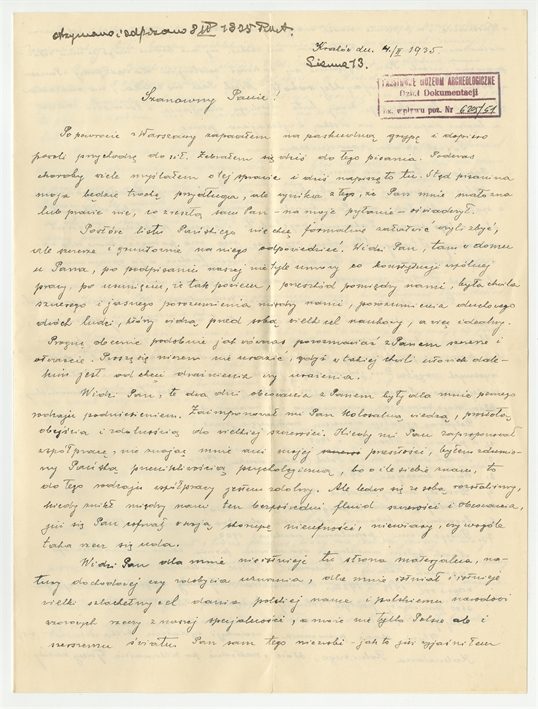 otrzymano i odpisano 8 IV 1935
Kraków dn. 4/II 1935
Sienna 13.
PAŃSTWOWE MUZEUM ARCHEOLOGICZNE
Dział Dokumentacji
ks. wpływu poz. Nr 625/61
Szanowny Panie!
Po powrocie z Warszawy zapadłem na paskudną grypę i dopiero
powoli przychodzę do sił. Zebrałem się dziś do tego pisania. Podczas
choroby wiele myślałem o tej sprawie i dziś napiszę to tu. Stąd pisanina
moja będzie trochę przydługa, ale wynika z tego, że Pan mnie mało zna
lub prawie nic, co zresztą sam Pan - na moje pytanie - oświadczył.
Pańskiego nie chcę formalnie załatwić czyli zbyć,
ale szczerze i gruntownie na niego odpowiedzieć. Widzi Pan, tam w domu
u Pana, po podpisaniu naszej nie tyle umowy co konstytucji wspólnej
pracy, po usunięciu, że tak powiem, przeszkód pomiędzy nami, była chwila
szczerego i jasnego porozumienia między nami, porozumienia duchowego
dwóch ludzi, którzy widzą przed sobą wielki cel naukowy, a więc idealny.
Pragnę obecnie podobnie jak wówczas porozmawiać z Panem szczerze i
otwarcie. Proszę się niczem nie urazić, gdyż w takiej chwili człowiek dale-
kim jest od chęci draśnięcia czy urażenia.
Widzi Pan, te dwa dni obcowania z Panem były dla mnie pewnego
rodzaju podniesieniem. Zaimponował mi Pan kolosalną wiedzą, prostotą
obejścia i zdolnością do wielkiej szczerości. Kiedy mi Pan zaproponował
współpracę, nie znając mnie ani mojej przeszłości, byłem zdumio-
ny Pańską przenikliwością psychologiczną, bo o ile siebie znam, to
do tego rodzaju współpracy jestem zdolny. Ale ledwo się ze sobą rozstaliśmy,
kiedy znikł między nami ten bezpośredni fluid szczerości i obcowania,
już się Pan cofnął w swoją skorupę nieufności, niewiary, czy wogóle
taka rzecz się uda.
Widzi Pan dla mnie nie istnieje tu strona materjalna, na-
tury dochodowej czy zdobycia uznania, dla mnie istniał i istnieje
wielki szlachetny cel dania polskiej nauce i polskiemu narodowi
wzorowych rzeczy z naszej specjalności, a może nie tylko Polsce ale i
szerszemu światu. Pan sam tego nie zrobi - jak to już wyjaśniłem